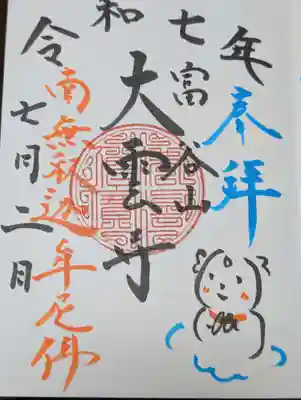 令和七年
奉拝
富谷山
大雲寺
南無釈迦牟尼佛
七月二日